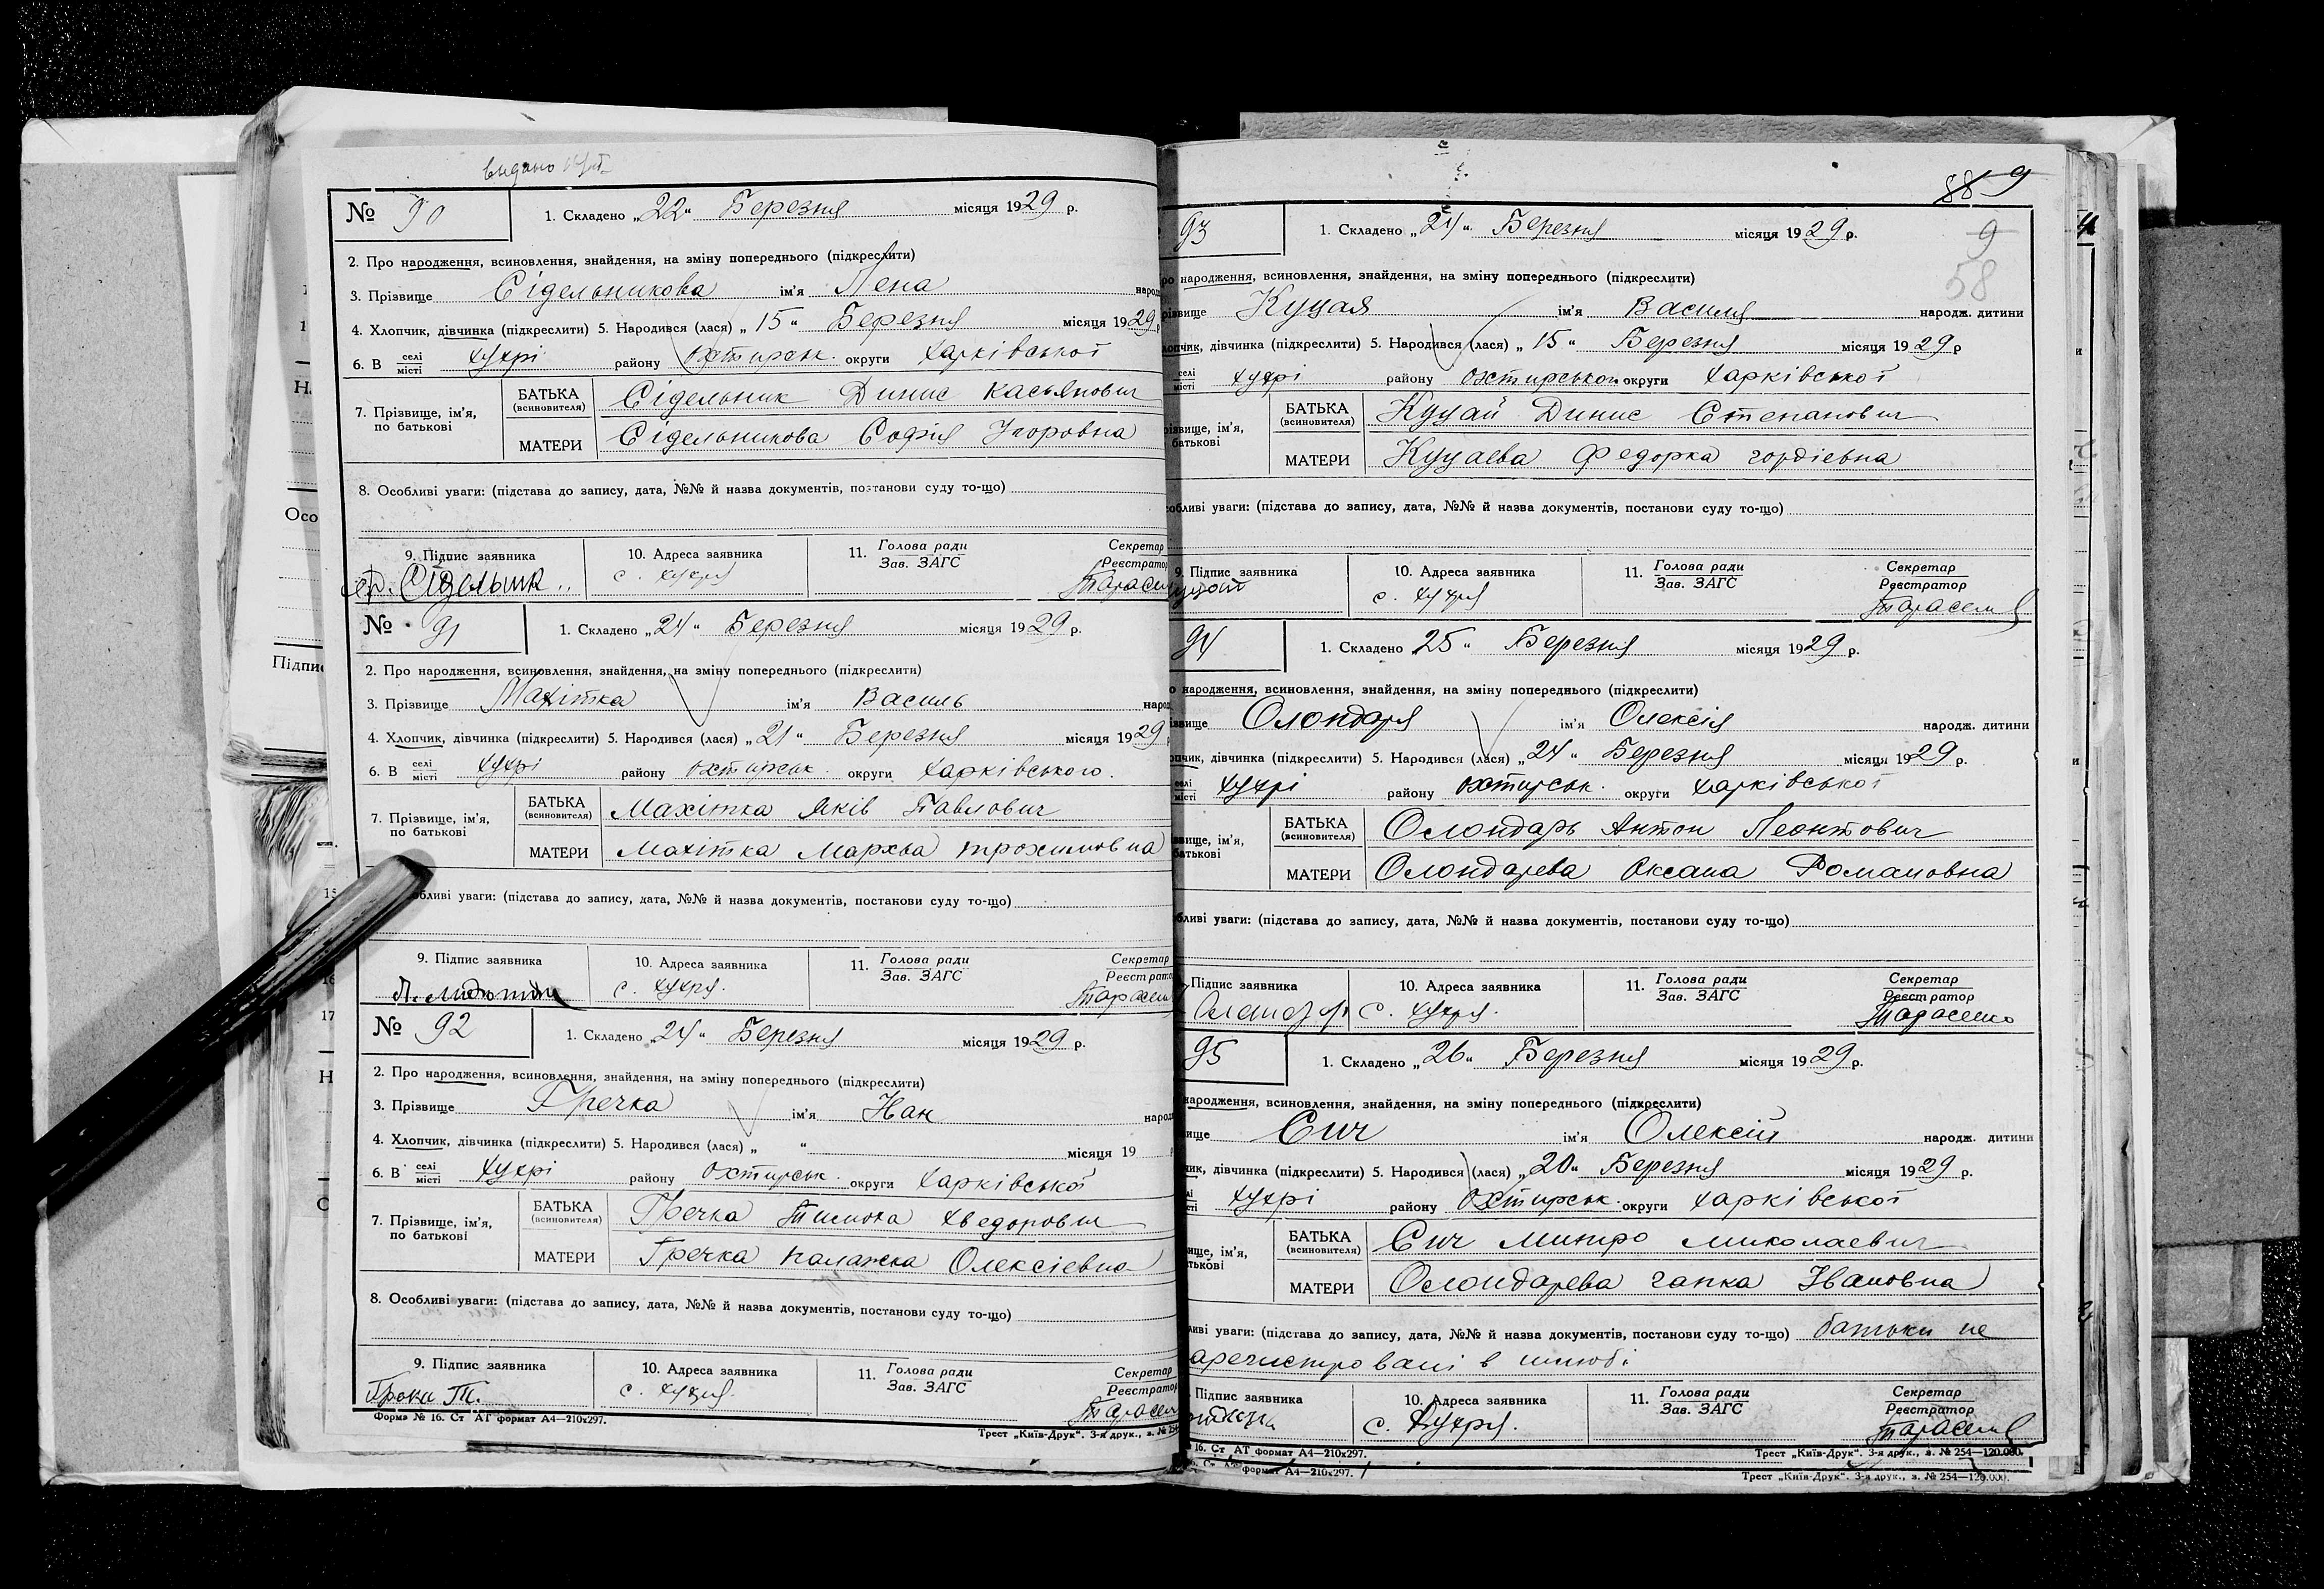 видано
№ 90 1. Складено „22“ Березня місяця 1929 р.
2. Про народження, всиновлення, знайдення, на зміну попереднього (підкреслити)
3. Прізвище Сідельникова ім'я Лена народ
4. Хлопчик, дівчинка (підкреслити) 5. Народився (лася) „15“ Березня місяця 1929
6. В селі місті Хухрі району Охтирськ. округи Харківської
7. Прізвище, ім'я, по батькові
БАТЬКА (всиновителя) Сідельник Динис Касьянович
МАТЕРИ Сідельникова Софія Ігоровна
8. Особливі уваги: (підстава до запису, дата, №№ й назва документів, постанови суду то-що)
9. Підпис заявника 10. Адреса заявника 11. Голова ради Зав. ЗАГС Секретар Реєстратор
Сідельник с. Хухря Тарасен
№ 91 1. Складено „24“ Березня місяця 1929 р.
2. Про народження, всиновлення, знайдення, на зміну попереднього (підкреслити)
3. Прізвище Махітка ім'я Василь народ
4. Хлопчик, дівчинка (підкреслити) 5. Народився (лася) „21“ Березня місяця 1929
6. В селі місті Хухрі району Охтирськ. округи Харківського.
7. Прізвище, ім'я, по батькові
БАТЬКА (всиновителя) Махітка Яків Павлович
МАТЕРИ Махітка Мархва Трохимовна
обливі уваги: (підстава до запису, дата, №№ й назва документів, постанови суду то-що)
9. Підпис заявника 10. Адреса заявника 11. Голова ради Зав. ЗАГС Секретар Реєстрато
с. Хухря. Тарасен
№ 92 1. Складено „24“ Березня місяця 1929 р.
2. Про народження, всиновлення, знайдення, на зміну попереднього (підкреслити)
3. Прізвище Гречка ім'я Іван народ
4. Хлопчик, дівчинка (підкреслити) 5. Народився (лася) „ “ місяця 19
6. В селі місті Хухрі району Охтирськ. округи Харківської
7. Прізвище, ім'я, по батькові
БАТЬКА (всиновителя) Гречка Тимоха Хведорович
МАТЕРИ Гречка Палажка Олексіевна
8. Особливі уваги: (підстава до запису, дата, №№ й назва документів, постанови суду то-що)
9. Підпис заявника 10. Адреса заявника 11. Голова ради Зав. ЗАГС Секретар Реєстратор
Т. с. Хухря. Тарасен
Форма № 16. Ст АТ формат А4—210х297.
Трест „Київ-Друк“. 3-я друк., з. № 254
88 9
93 1. Складено „24“ Березня місяця 1929 р.
9
58
ро народження, всиновлення, знайдення, на зміну попереднього (підкреслити)
різвище Куцая ім'я Василя народж. дитини
лопчик, дівчинка (підкреслити) 5. Народився (лася) „15“ Березня місяця 1929 р
селі місті Хухрі району Охтирськои округи Харківської
різвище, ім'я, батькові
БАТЬКА (всиновителя) Куцай Динис Степанович
МАТЕРИ Куцаева Федорка Гордіевна
собливі уваги: (підстава до запису, дата, №№ й назва документів, постанови суду то-що)
9. Підпис заявника 10. Адреса заявника 11. Голова ради Зав. ЗАГС Секретар Реєстратор
с. Хухря Тарасен
94 1. Складено „25“ Березня місяця 1929 р.
о народження, всиновлення, знайдення, на зміну попереднього (підкреслити)
звище Олондаря ім'я Олексія народж. дитини
пчик, дівчинка (підкреслити) 5. Народився (лася) „24“ Березня місяця 1929 р.
селі місті Хухрі району Охтирськ. округи Харківської
звище, ім'я, батькові
БАТЬКА (всиновителя) Олондарь Антон Леонтович
МАТЕРИ Олондарева Оксана Романовна
бливі уваги: (підстава до запису, дата, №№ й назва документів, постанови суду то-що)
Підпис заявника 10. Адреса заявника 11. Голова ради Зав. ЗАГС Секретар Реєстратор
с. Хухря. Тарасенко
95 1. Складено „26“ Березня місяця 1929 р.
народження, всиновлення, знайдення, на зміну попереднього (підкреслити)
вище Сич ім'я Олексій народж. дитини
чик, дівчинка (підкреслити) 5. Народився (лася) „20“ Березня місяця 1929 р.
Хухрі району Охтирськ. округи Харківської
вище, ім'я, тькові
БАТЬКА (всиновителя) Сич Митро Миколаевич
МАТЕРИ Олондарева Гапка Івановна
ливі уваги: (підстава до запису, дата, №№ й назва документів, постанови суду то-що) батьки не
арегистровані в шлюбі
Підпис заявника 10. Адреса заявника 11. Голова ради Зав. ЗАГС Секретар Реєстратор
с. Хухря. Тарасен
16. Ст АТ формат А4—210х297. Трест „Київ-Друк“. 3-я друк., з. № 254—120.000.
формат А4—210х297. Трест „Київ-Друк“. 3-я друк., з. № 254—120.000.